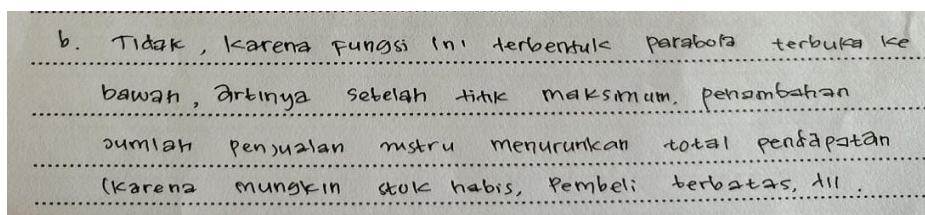 b. Tidak, karena fungsi ini terbentuk parabola terbuka ke
bawah, artinya setelah titik maksimum, penambahan
jumlah penjualan justru menurunkan total pendapatan
(karena mungkin stok habis, Pembeli terbatas, dll.